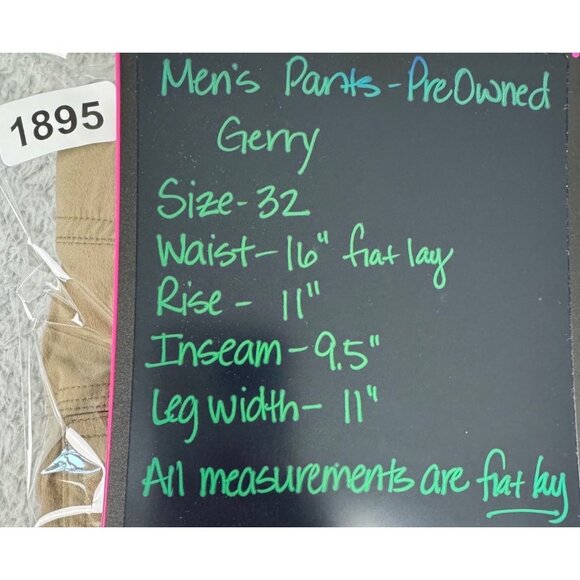 1895
Men's Pants - PreOwned
Gerry
Size - 32
Waist - 16" flat lay
Rise - 11"
Inseam - 9.5"
Leg width - 11"
All measurements are flat lay